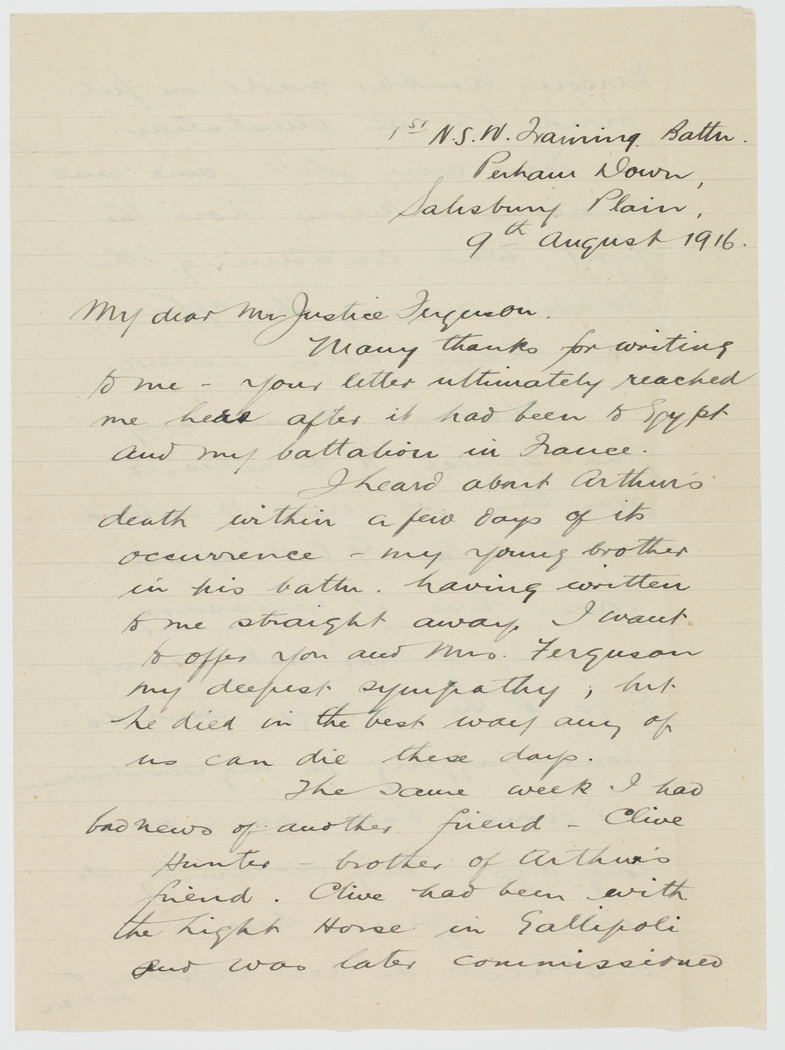 1st N.S.W. Training Battn.
Perham Down,
Salisbury Plain,
9th August 1916.
My dear Mr Justice Ferguson.
Many thanks for writing
to me - your letter ultimately reached
me here after it had been to Egypt
and my battalion in France.
I heard about Arthur's
death within a few days of its
occurrence - my young brother
in his battn. having written
to me straight away. I want
to offer you and Mrs. Ferguson
my deepest sympathy; but
he died in the best way any of
us can die these days.
The same week I had
bad news of another friend - Clive
Hunter - brother of Arthur's
friend. Clive had been with
the Light Horse in Gallipoli
and was later commissioned